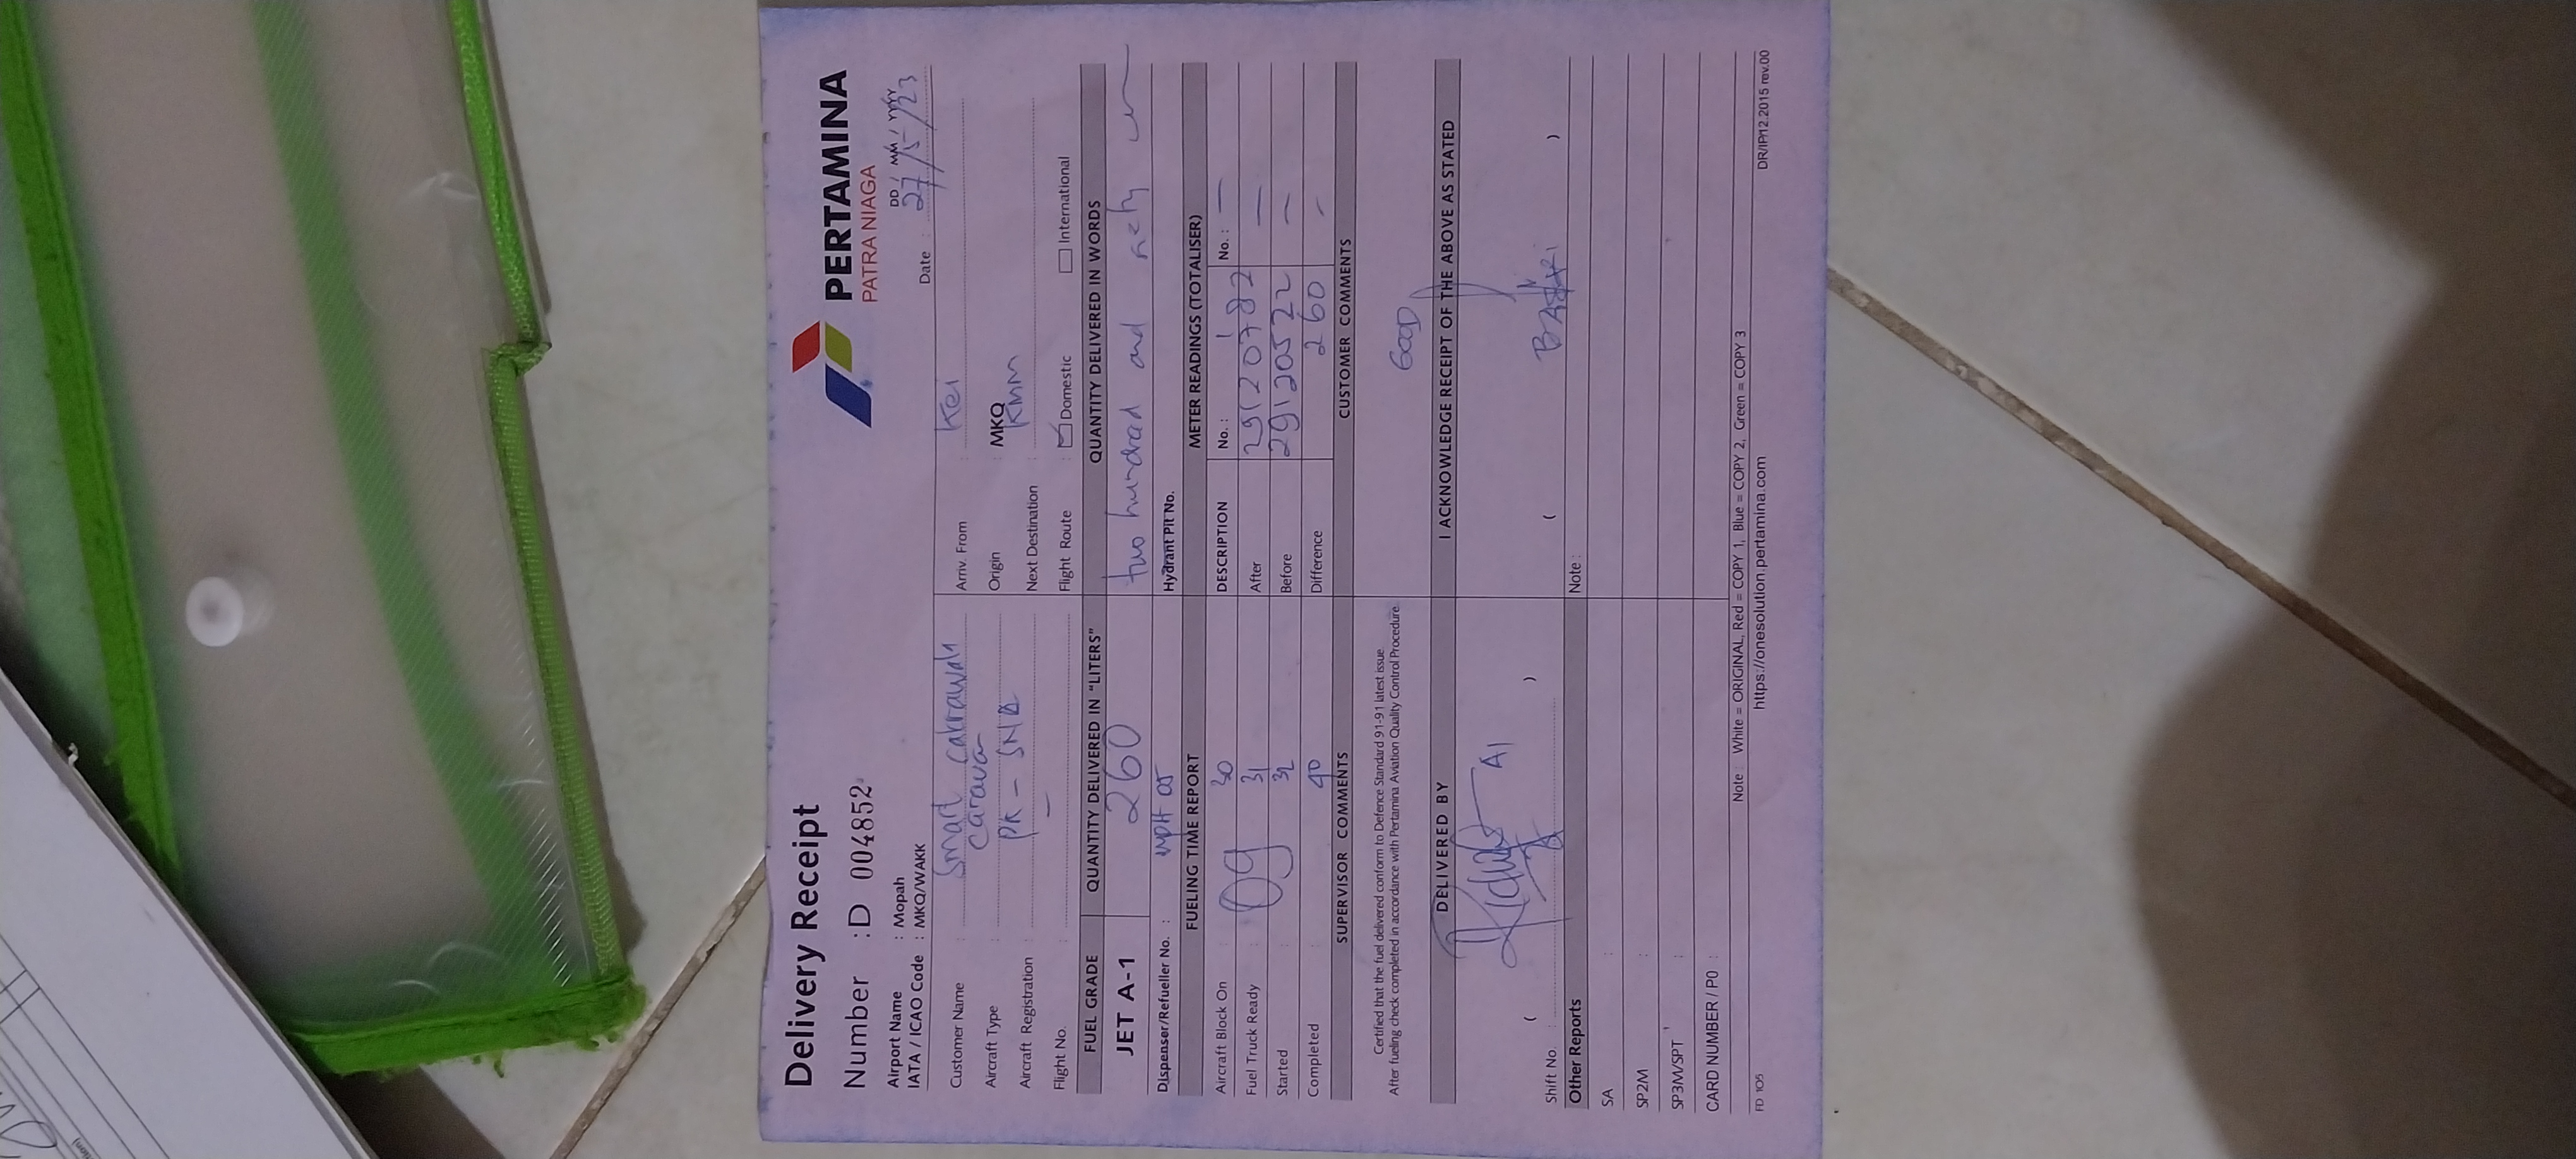 Delivery Receipt
PERTAMINA
PATRA NIAGA
Number : D 004852
DD / MM / YYYY
Airport Name : Mopah
IATA / ICAO Code : MKQ/WAKK
Date : 27/5/23
Customer Name : Smart Cakrawala
Aircraft Type : Caravan
Aircraft Registration : PK -
Flight No. : —
Arriv. From : Kei
Origin : MKQ
Next Destination : KMM
Flight Route : Domestic International
FUEL GRADE
QUANTITY DELIVERED IN "LITERS"
QUANTITY DELIVERED IN WORDS
JET A-1
260
two hundred and
Dispenser/Refueller No. : MPH 05
Hydrant Pit No.
FUELING TIME REPORT
METER READINGS (TOTALISER)
Aircraft Block On : 09 30
Fuel Truck Ready : 31
Started : 32
Completed : 40
DESCRIPTION No. : 1 No. : —
After 29120782 —
Before 29120522 —
Difference 260 -
SUPERVISOR COMMENTS
CUSTOMER COMMENTS
Certified that the fuel delivered conform to Defence Standard 91-91 latest issue.
After fueling check completed in accordance with Pertamina Aviation Quality Control Procedure.
GOOD
DELIVERED BY
I ACKNOWLEDGE RECEIPT OF THE ABOVE AS STATED
A1
( )
( )
Shift No. :
Note :
Other Reports
SA :
SP2M :
SP3M/SPT :
CARD NUMBER / PO :
Note : White = ORIGINAL, Red = COPY 1, Blue = COPY 2, Green = COPY 3
FD 105
https://onesolution.pertamina.com
DR/IP/12.2015 rev.00